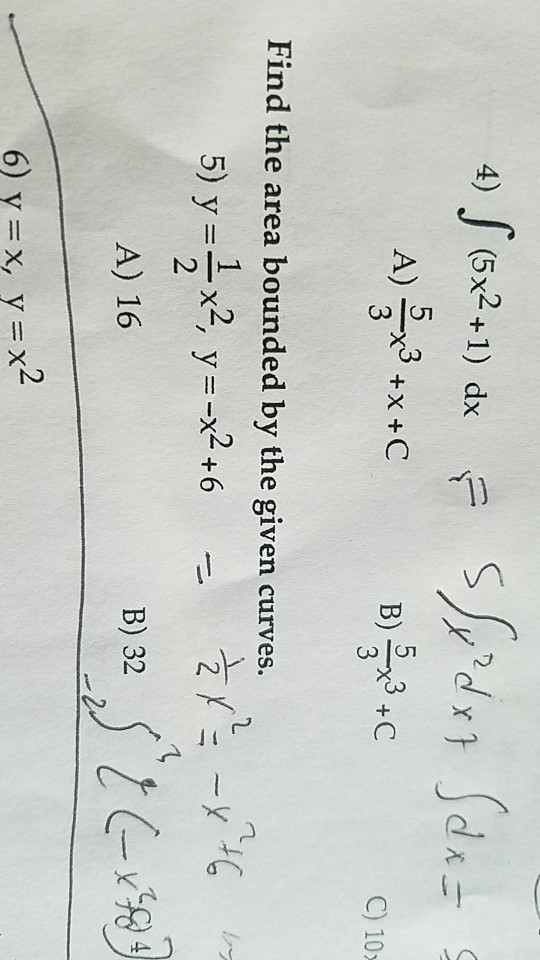 4) ∫ (5x² + 1) dx = 5∫x²dx + ∫dx =
A) 5/3 x³ + x + C B) 5/3 x³ + C C) 10x
Find the area bounded by the given curves.
5) y = 1/2 x², y = -x² + 6 = 1/2 x² = -x² + 6
A) 16 B) 32 C) 4
-2∫² [(-x²+6)
6) y = x, y = x²